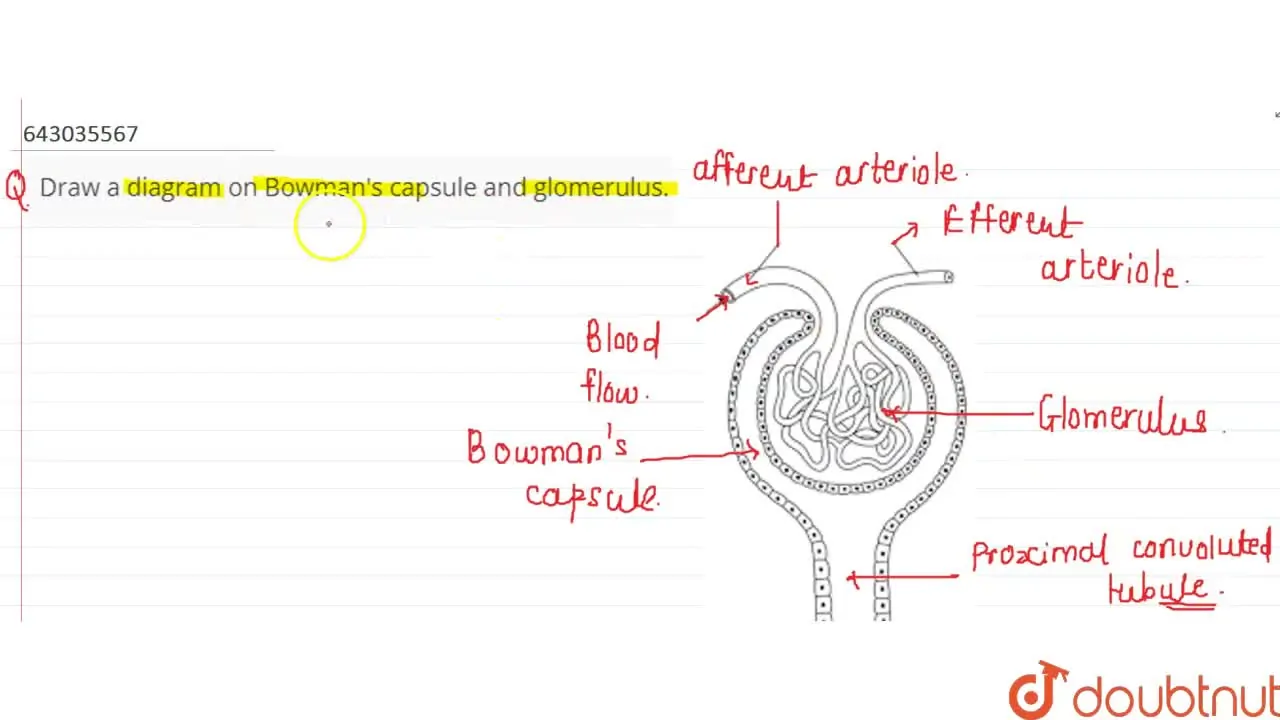 643035567
Q. Draw a diagram on Bowman's capsule and glomerulus.
afferent arteriole.
Efferent
arteriole.
Blood
flow.
Glomerulus.
Bowman's
capsule.
Proximal convoluted
tubule.
doubtnut